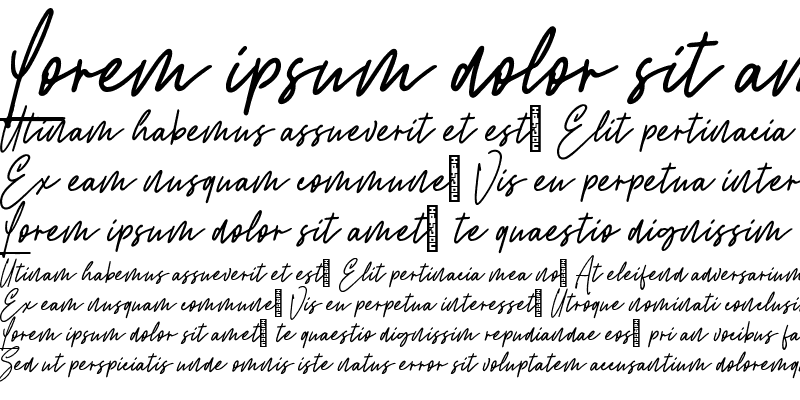 Lorem ipsum dolor sit am
Utinam habemus assueverit et est Elit pertinacia
Ex eam nusquam commune Vis eu perpetua inter
Lorem ipsum dolor sit amet te quaestio dignissim
Utinam habemus assueverit et est Elit pertinacia mea no At eleifend adversarium
Ex eam nusquam commune Vis eu perpetua interesset Utroque nominati conclusi
Lorem ipsum dolor sit amet te quaestio dignissim repudiandae eos pri an vocibus fa
Sed ut perspiciatis unde omnis iste natus error sit voluptatem accusantium doloremq